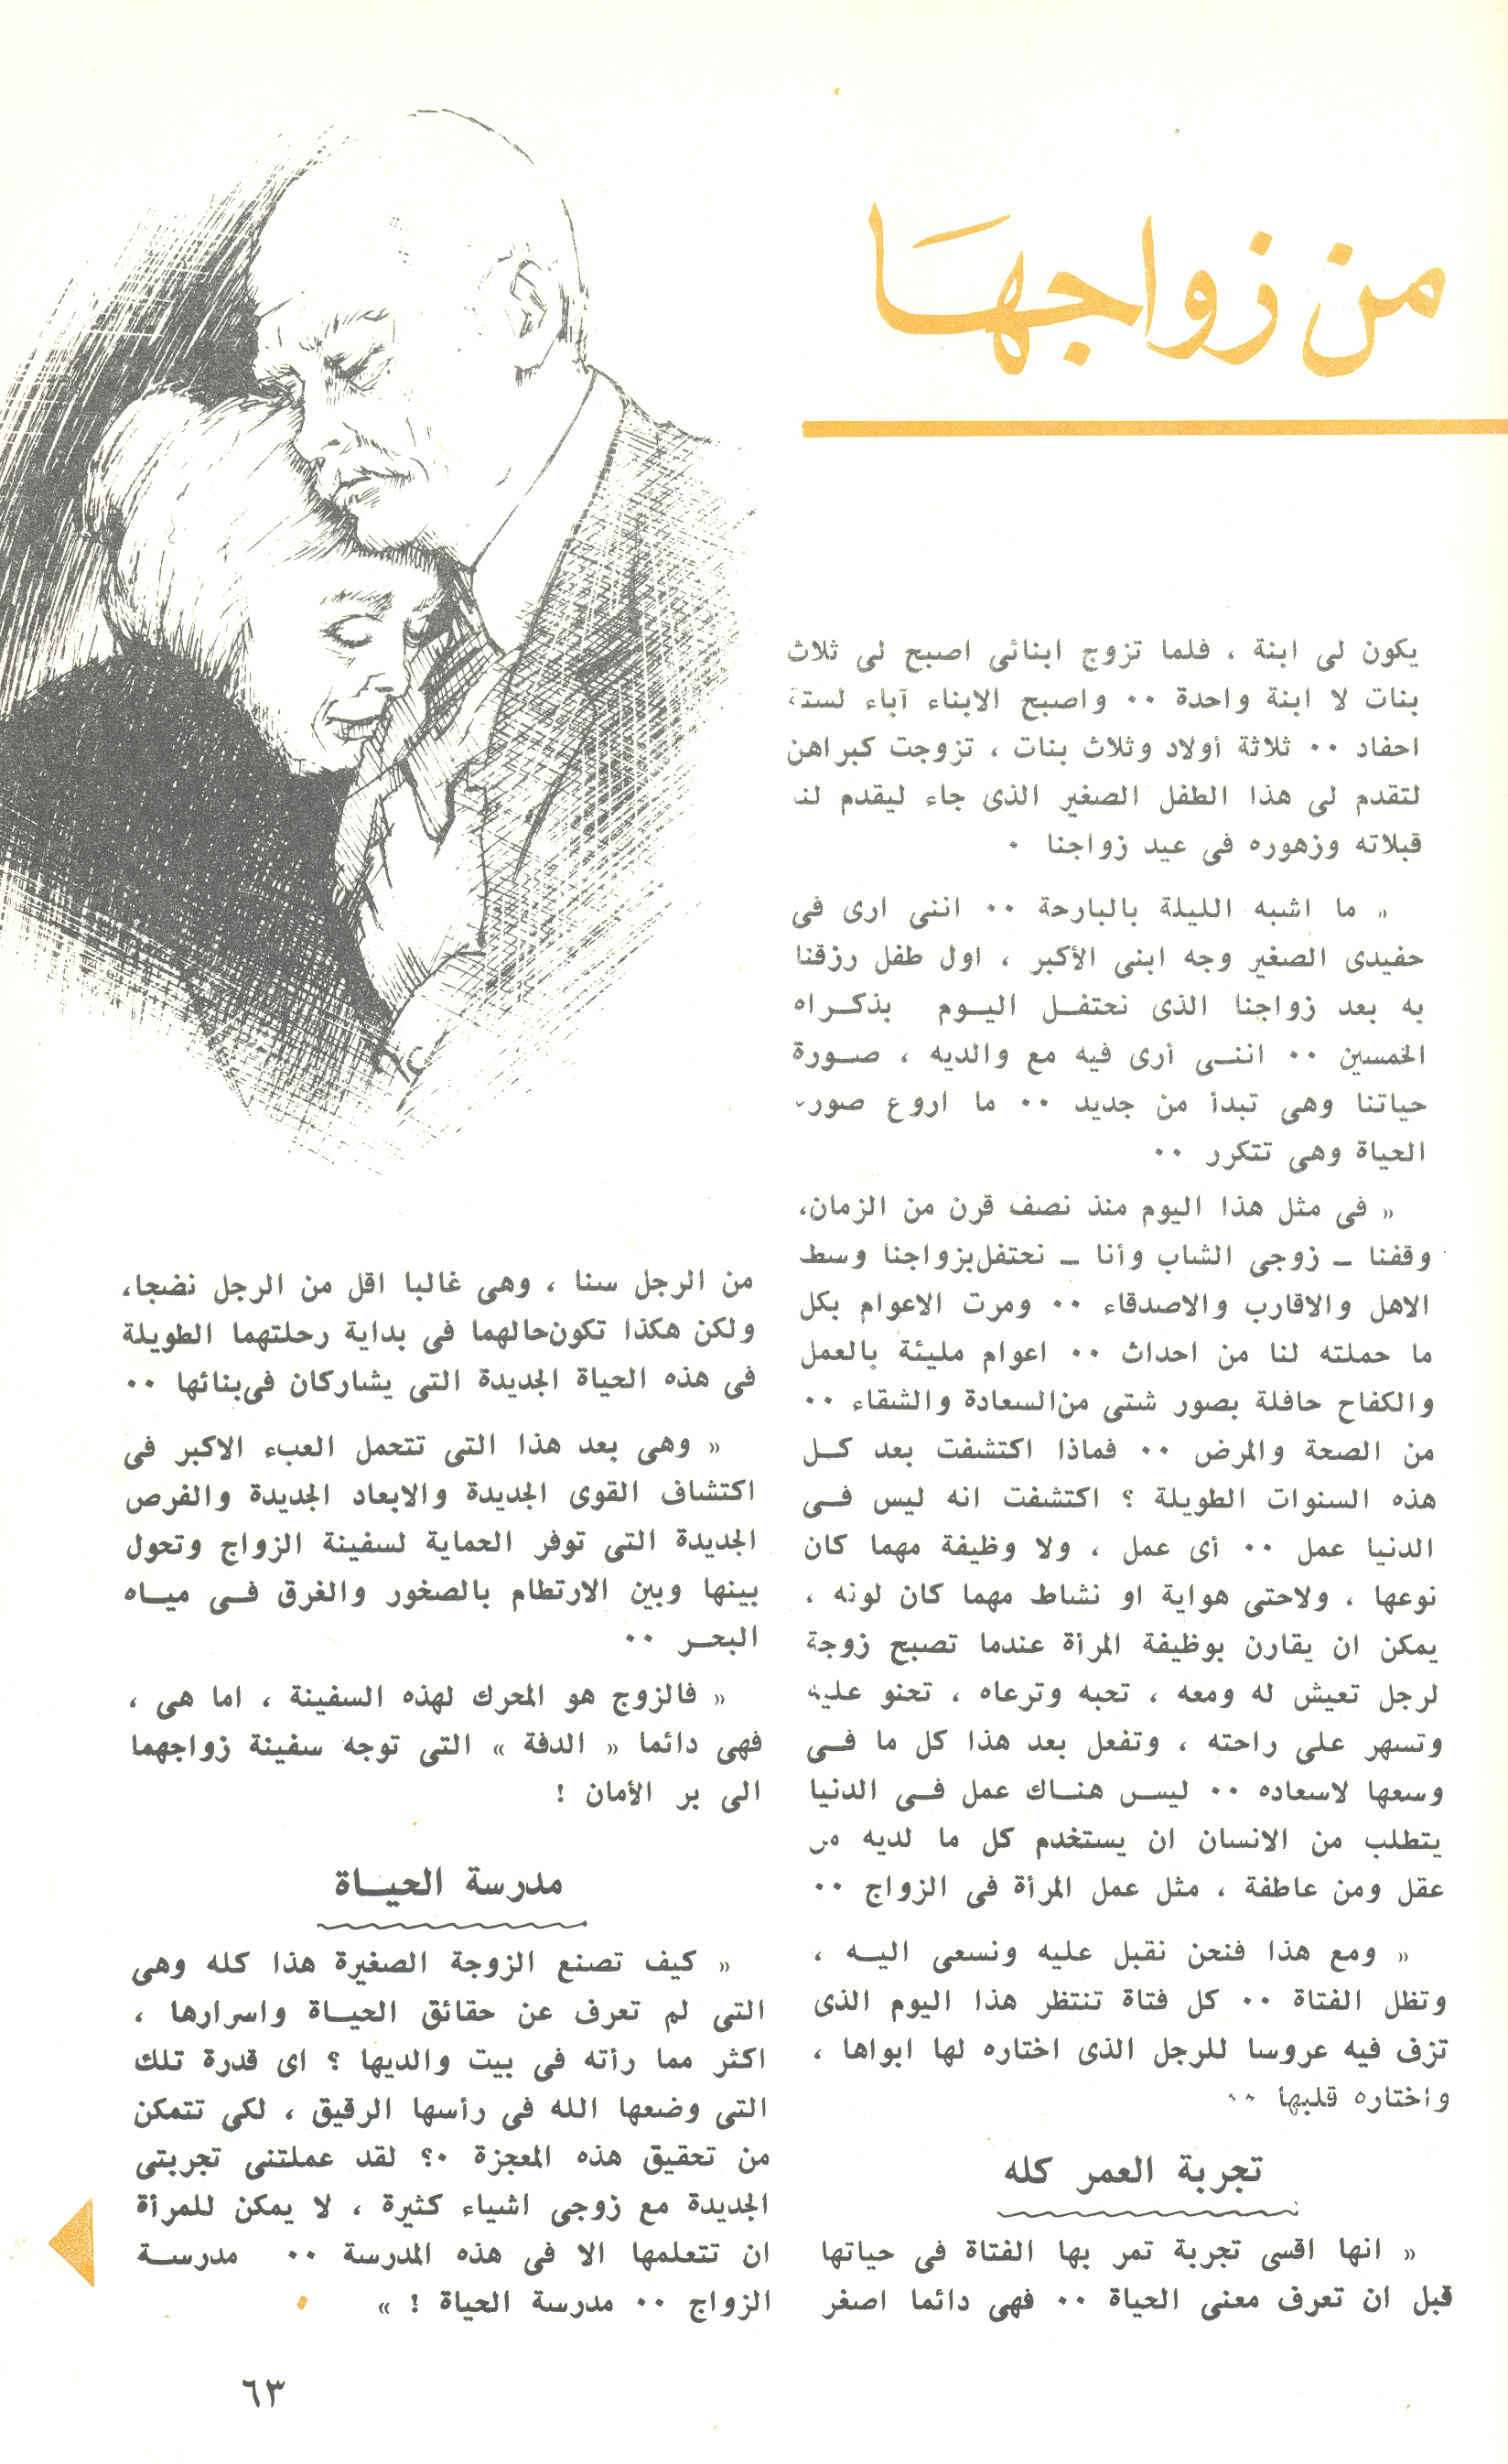 من زواجها
يكون لى ابنة ، فلما تزوج ابنائى اصبح لى ثلاث
بنات لا ابنة واحدة ٠٠ واصبح الابناء آباء لستة
احفاد ٠٠ ثلاثة أولاد وثلاث بنات ، تزوجت كبراهن
لتقدم لى هذا الطفل الصغير الذى جاء ليقدم لنا
قبلاته وزهوره فى عيد زواجنا ٠
« ما اشبه الليلة بالبارحة ٠٠ اننى ارى فى
حفيدى الصغير وجه ابنى الأكبر ، اول طفل رزقنا
به بعد زواجنا الذى نحتفــل اليــوم بذكــراه
الخمسين ٠٠ اننــى أرى فيه مع والديه ، صــورة
حياتنا وهى تبدأ من جديد ٠٠ ما اروع صور
الحياة وهى تتكرر ٠٠
« فى مثل هذا اليوم منذ نصف قرن من الزمان،
وقفنا ــ زوجى الشاب وأنا ــ نحتفل بزواجنا وسط
الاهل والاقارب والاصدقاء ٠٠ ومرت الاعوام بكل
ما حملته لنا من احداث ٠٠ اعوام مليئة بالعمل
والكفاح حافلة بصور شتى من السعادة والشقاء ٠٠
من الصحة والمرض ٠٠ فماذا اكتشفت بعد كــل
هذه السنوات الطويلة ؟ اكتشفت انه ليس فــى
الدنيا عمل ٠٠ أى عمل ، ولا وظيفة مهما كان
نوعها ، ولاحتى هواية او نشاط مهما كان لونه ،
يمكن ان يقارن بوظيفة المرأة عندما تصبح زوجة
لرجل تعيش له ومعه ، تحبه وترعاه ، تحنو عليه
وتسهر على راحته ، وتفعل بعد هذا كل ما فــى
وسعها لاسعاده ٠٠ ليــس هنــاك عمل فــى الدنيا
يتطلب من الانسان ان يستخدم كل ما لديه من
عقل ومن عاطفة ، مثل عمل المرأة فى الزواج ٠٠
« ومع هذا فنحن نقبل عليه ونسعى اليــه ،
وتظل الفتاة ٠٠ كل فتاة تنتظر هذا اليوم الذى
تزف فيه عروسا للرجل الذى اختاره لها ابواها ،
واختاره قلبها ٠٠
تجربة العمر كله
« انها اقسى تجربة تمر بها الفتاة فى حياتها
قبل ان تعرف معنى الحياة ٠٠ فهى دائما اصغر
من الرجل سنا ، وهى غالبا اقل من الرجل نضجا،
ولكن هكذا تكون حالهما فى بداية رحلتهما الطويلة
فى هذه الحياة الجديدة التى يشاركان فى بنائها ٠٠
« وهى بعد هذا التى تتحمل العبء الاكبر فى
اكتشاف القوى الجديدة والابعاد الجديدة والفرص
الجديدة التى توفر الحماية لسفينة الزواج وتحول
بينها وبين الارتطام بالصخور والغرق فــى ميــاه
البحــر ٠٠
« فالزوج هو المحرك لهذه السفينة ، اما هى ،
فهى دائما « الدفة » التى توجه سفينة زواجهما
الى بر الأمان !
مدرسة الحيــاة
« كيف تصنع الزوجة الصغيرة هذا كله وهى
التى لم تعرف عن حقائق الحيــاة واسرارها ،
اكثر مما رأته فى بيت والديها ؟ اى قدرة تلك
التى وضعها الله فى رأسها الرقيق ، لكى تتمكن
من تحقيق هذه المعجزة ٠؟ لقد عملتنى تجربتى
الجديدة مع زوجى اشياء كثيرة ، لا يمكن للمرأة
ان تتعلمها الا فى هذه المدرسة ٠٠ مدرســة
الزواج ٠٠ مدرسة الحياة ! »
٦٣